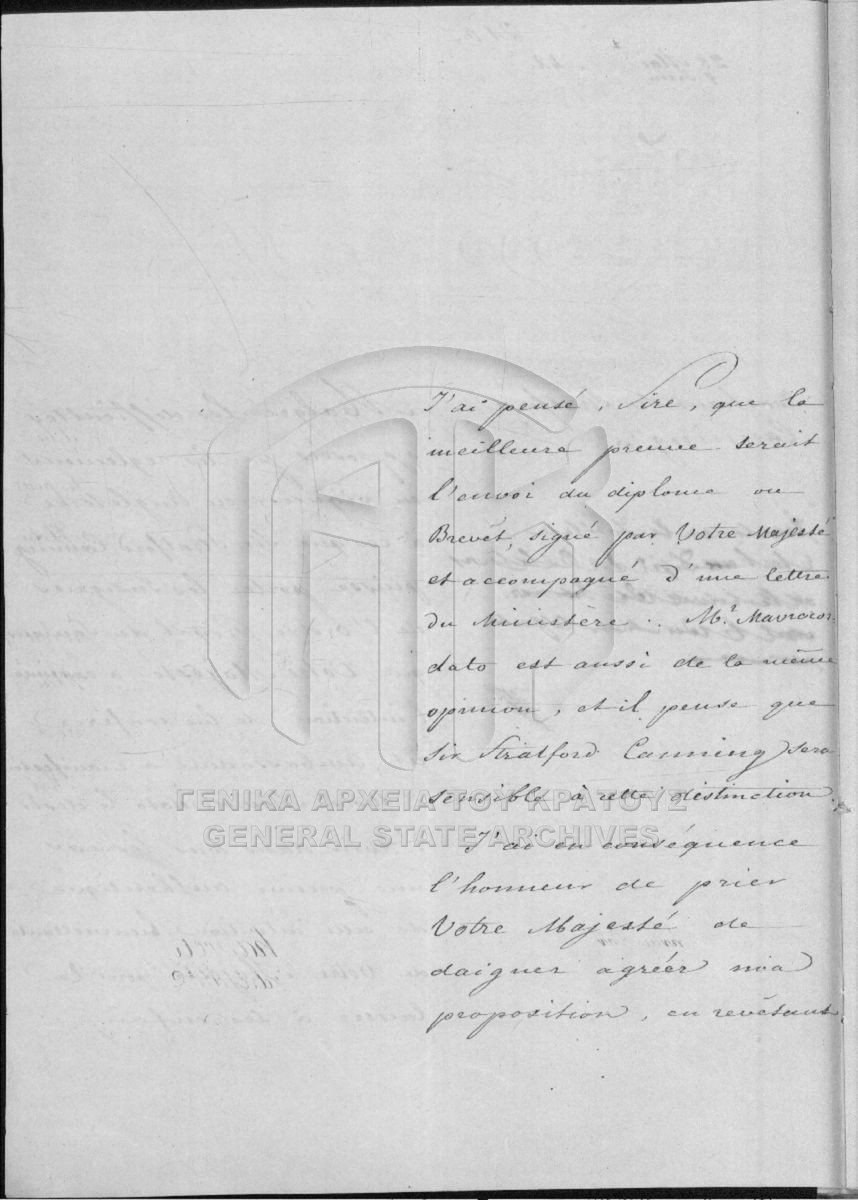 J'ai pensé, Sire, que la
meilleure preuve serait
l'envoi du diplome ou
Brevêt, signé par Votre Majesté
et accompagné d'une lettre
du Ministère. Mr. Mavrocor-
dato est aussi de la même
opinion, et il pense que
sir Stratford Canning sera
sensible à cette distinction.
ΓΕΝΙΚΑ ΑΡΧΕΙΑ ΤΟΥ ΚΡΑΤΟΥΣ
GENERAL STATE ARCHIVES
J'ai en conséquence
l'honneur de prier
Votre Majesté de
daigner agréer ma
proposition, en revêtant